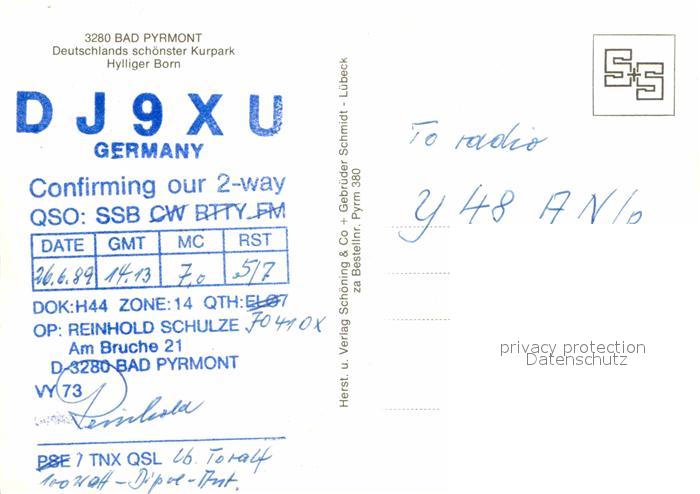 3280 BAD PYRMONT
Deutschlands schönster Kurpark
Hylliger Born
DJ9XU
GERMANY
Confirming our 2-way
QSO: SSB CW RTTY FM
DATE GMT MC RST
26.6.89 14.13 7,0 5/7
DOK:H44 ZONE:14 QTH:EL07 JO41OX
OP: REINHOLD SCHULZE
Am Bruche 21
D-3280 BAD PYRMONT
VY 73
Reinhold
PSE / TNX QSL Lb. Toralf
100 Watt - Dipol-Ant.
Herst. u. Verlag Schöning & Co + Gebrüder Schmidt - Lübeck
za Bestellnr. Pyrm 380
S+S
To radio
Y48AN/o
privacy protection
Datenschutz